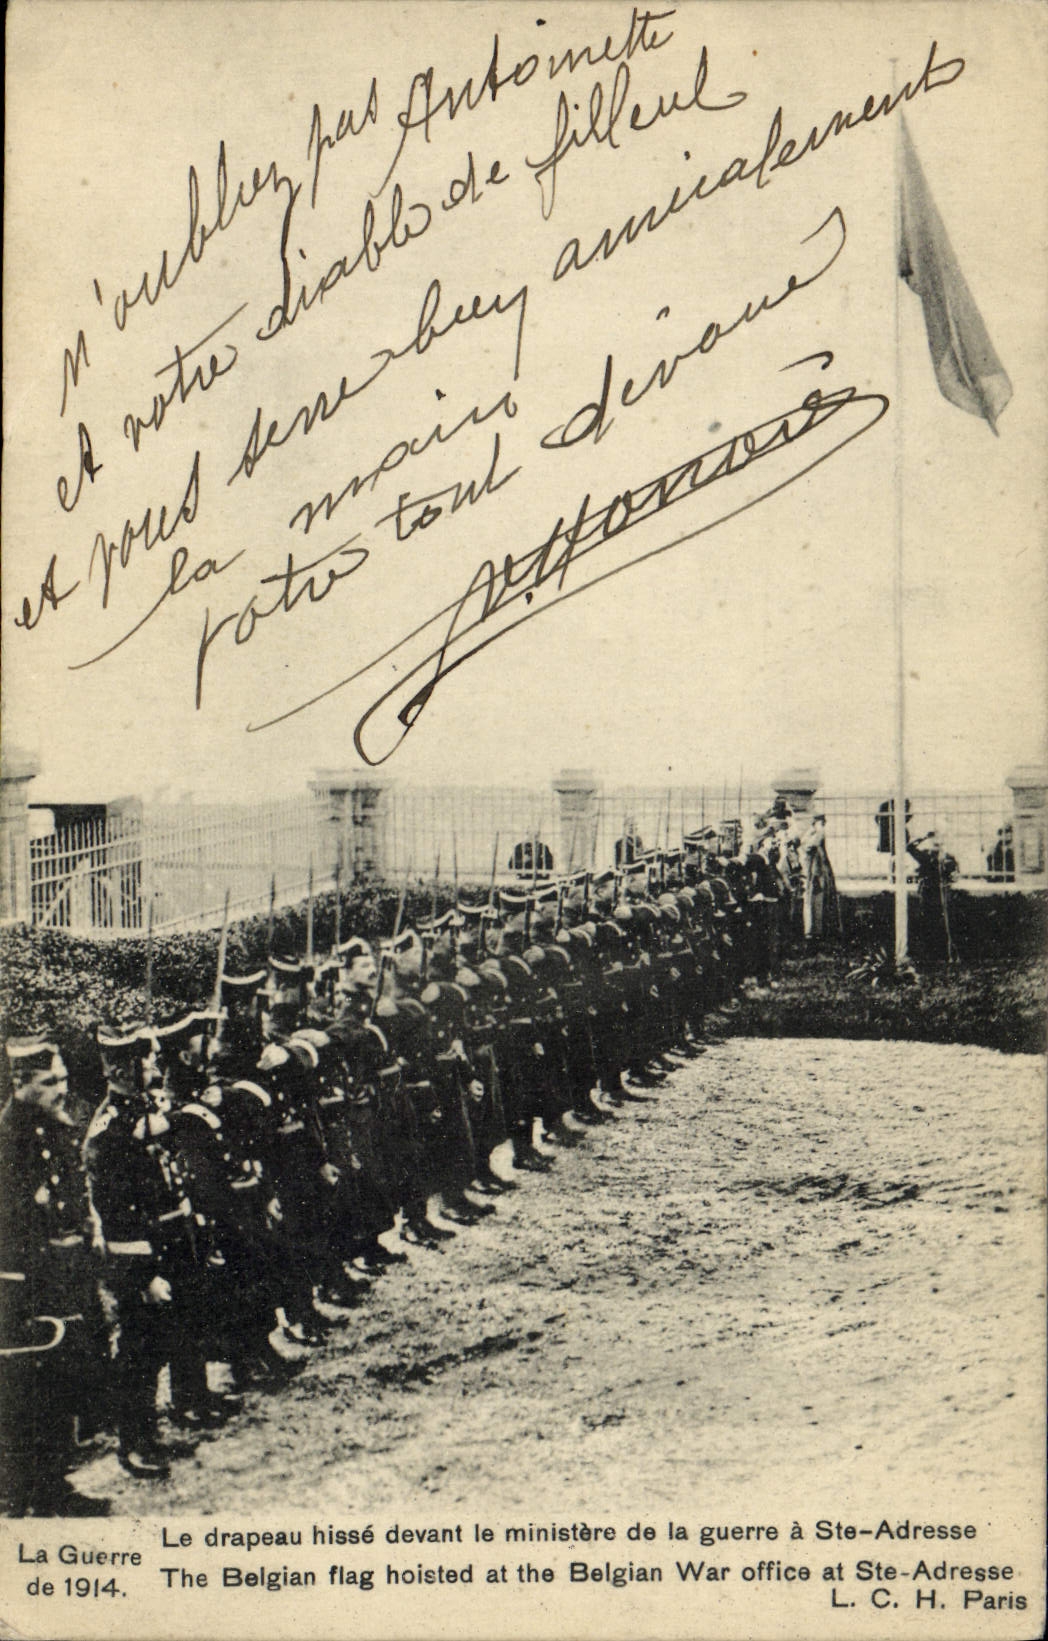 n'oubliez pas Antoinette
et votre diable de filleul
et vous serre bien amicalement
la main
votre tout dévoué
Honoré
La Guerre
de 1914.
Le drapeau hissé devant le ministère de la guerre à Ste-Adresse
The Belgian flag hoisted at the Belgian War office at Ste-Adresse
L. C. H. Paris